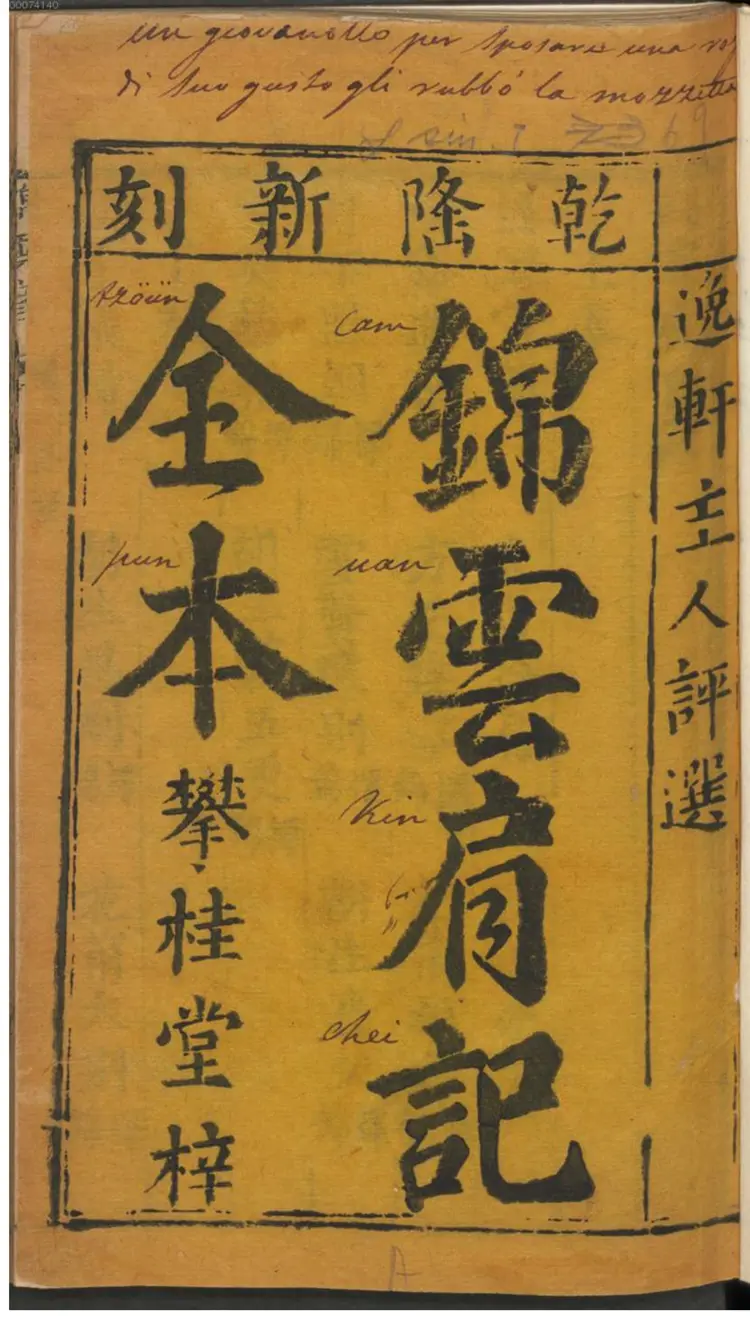 00074140
un giovanotto per sposare una
di suo gusto gli rubbò la mozzetta
乾隆新刻
逸軒主人評選
錦雲肩記
cam
uan
Kin
chei
全本
tzöün
pun
攀桂堂梓
A